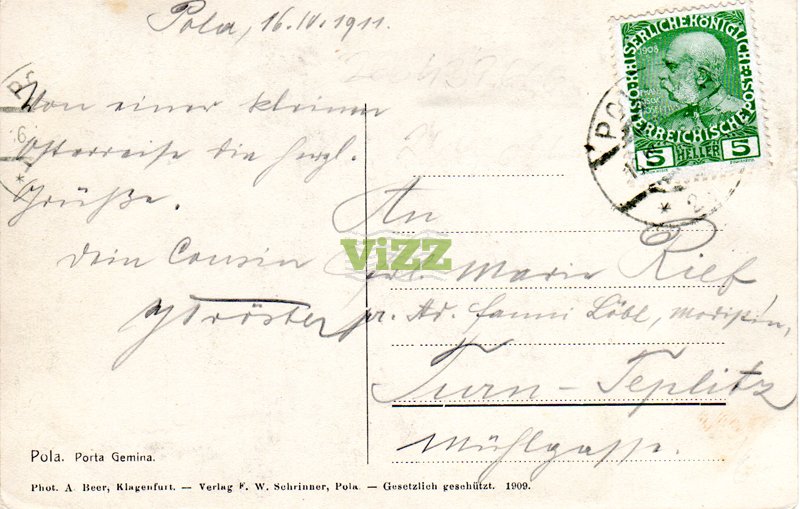 Pola, 16.IV.1911.
Von einer kleinen
Osterreise die herzl.
Grüße.
Dein Cousin
An
Frl. Marie Rief
pr. Ad. Fanni Löbl, Modistin,
Turn-Teplitz
Mühlgasse.
KAISERLICHE KÖNIGLICHE
ÖSTERREICHISCHE
1908
5 HELLER 5
POL
ViZZ
Pola. Porta Gemina.
Phot. A. Beer, Klagenfurt. — Verlag F. W. Schrinner, Pola. — Gesetzlich geschützt. 1909.